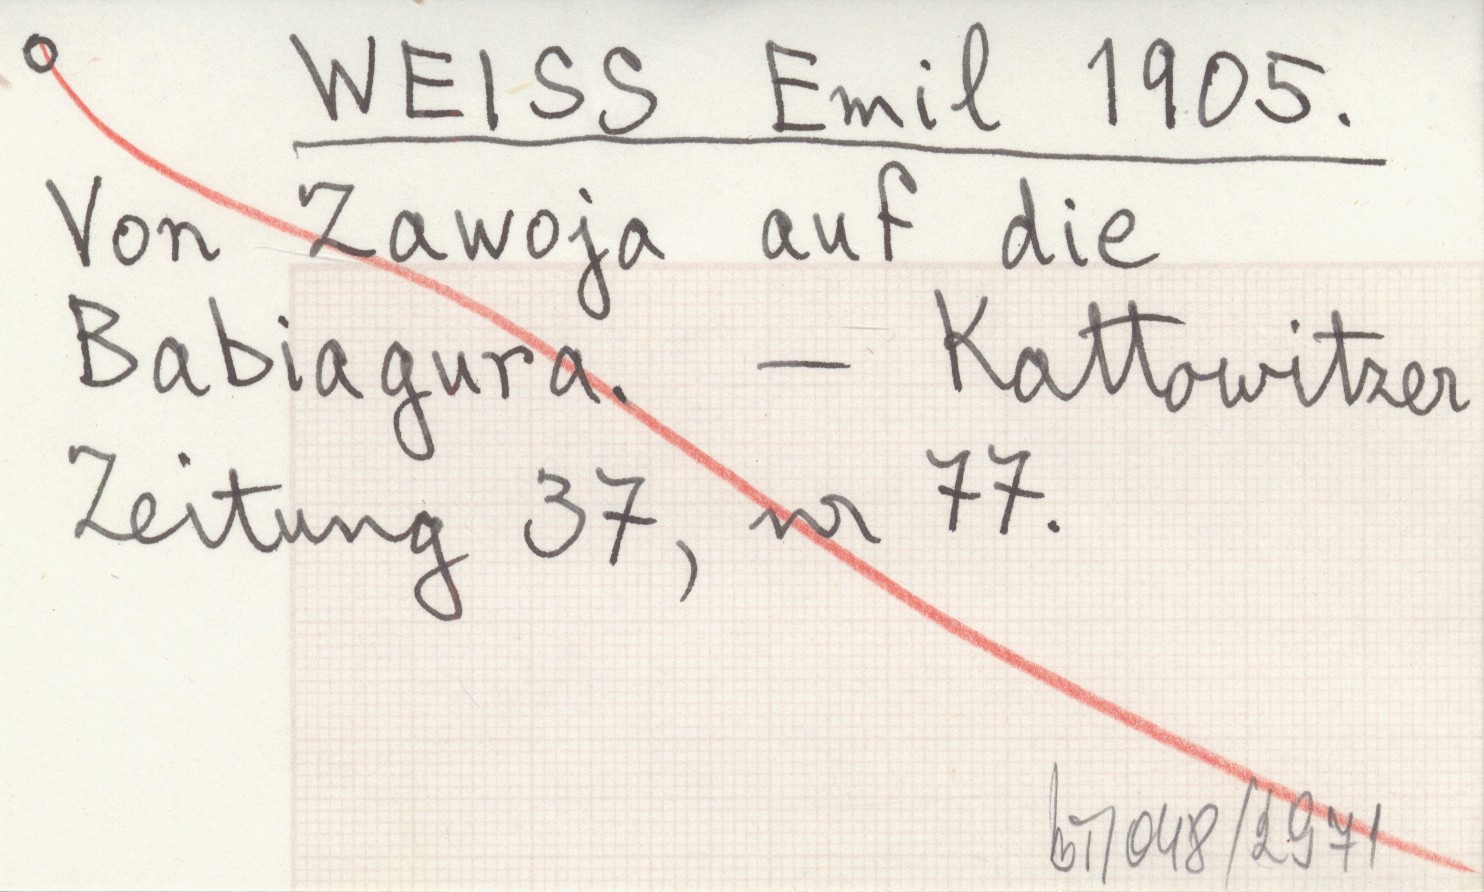 WEISS Emil 1905.
Von Zawoja auf die
Babiagura. — Kattowitzer
Zeitung 37, nr 77.